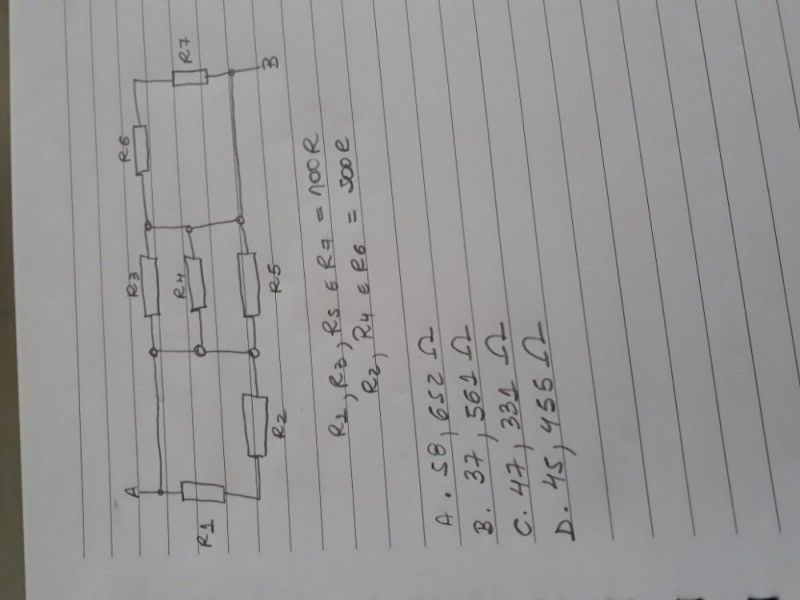 A
B
R1
R2
R3
R4
R5
R6
R7
R1, R3, R5 e R7 = 100R
R2, R4 e R6 = 500R
A. 58,652 Ω
B. 37,561 Ω
C. 47,331 Ω
D. 45,455 Ω